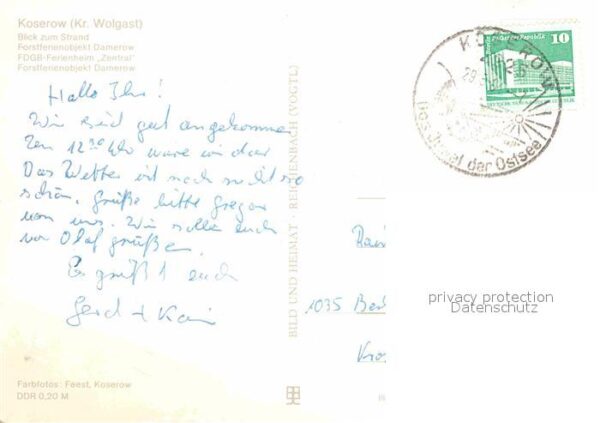 Koserow (Kr. Wolgast)
Blick zum Strand
Forstferienobjekt Damerow
FDGB-Ferienheim „Zentral"
Forstferienobjekt Damerow
Hallo Ihr!
Wir sind gut angekommen
12 30 Uhr waren wir da
Das Wetter ist noch nicht so
schön, Grüße bitte Gregor
von uns. Wir sollen euch
von Olaf grüßen.
Es grüßt euch
Gerd + Kai
Farbfotos: Feest, Koserow
DDR 0,20 M
BILD UND HEIMAT · REICHENBACH (VOGTL)
KOSEROW
10
der Ostsee
1035
privacy protection
Datenschutz